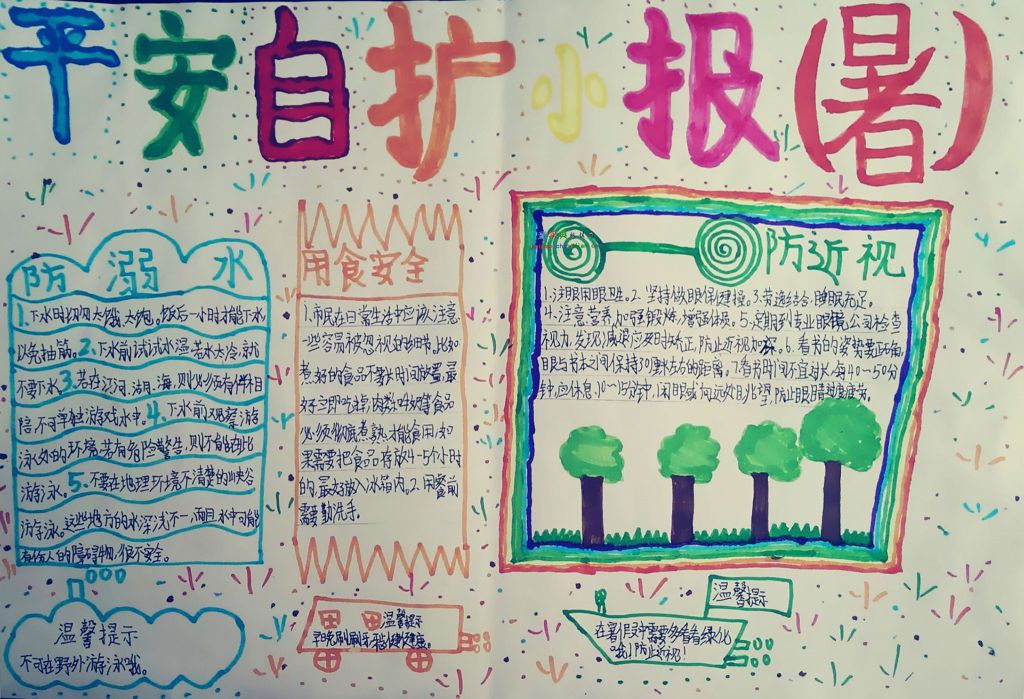 平安自护小报(暑)
防溺水
1.下水时切勿太饿、太饱。饭后一小时才能下水
以免抽筋。2.下水前试试水温,若水太冷,就
不要下水。3.若在江、河、湖、海,则必须有伴相
陪,不可单独游戏水中。4.下水前观察游
泳处的环境,若有危险警告,则不能在此
游泳。5.不要在地理环境不清楚的山夹谷
游泳。这些地方的水深浅不一,而且水中可能
有伤人的障碍物,很不安全。
温馨提示
不可在野外游泳哦。
用食安全
1.市民在日常生活中应该注意
一些容易被忽视的细节。比如
煮好的食品不要长时间放置,最
好立即吃掉,肉类、奶等食品
必须彻底煮熟才能食用,如
果需要把食品存放4-5个小时
的,最好放入冰箱内。2.用餐前
需要勤洗手。
温馨提示
防近视
1.注意用眼卫生。2.坚持做眼保健操。3.劳逸结合,睡眠充足。
4.注意营养,加强锻炼,增强体质。5.定期到专业眼镜公司检查
视力,发现减退应及时矫正,防止近视加深。6.看书的姿势要正确,
眼与书本之间保持30厘米左右的距离。7.看书时间不宜过长,每40~50分
钟应休息10~15分钟,闭眼或向远处眺望,防止眼睛过度疲劳。
温馨提示
在暑假中需要多看看绿化
哦!防止近视!